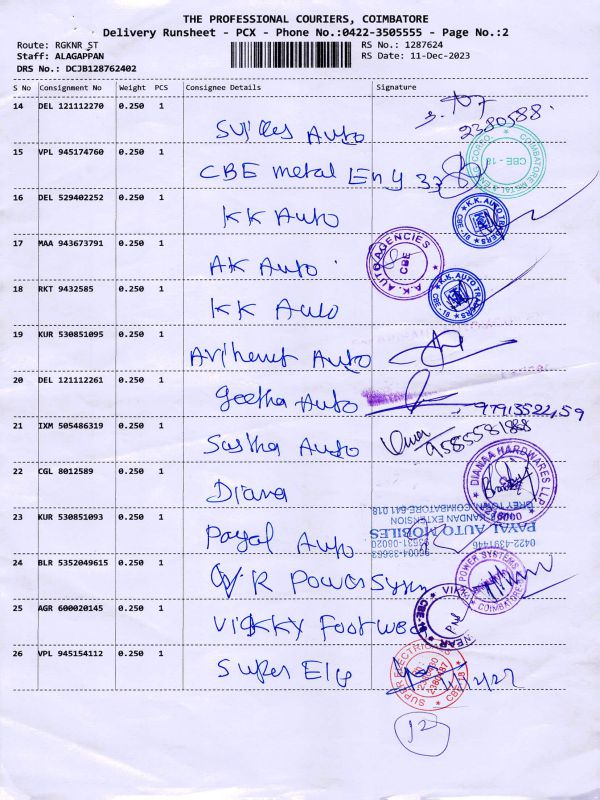 THE PROFESSIONAL COURIERS, COIMBATORE
Delivery Runsheet - PCX - Phone No.:0422-3505555 - Page No.:2
Route: RGKNR ST RS No.: 1287624
Staff: ALAGAPPAN RS Date: 11-Dec-2023
DRS No.: DCJB128762402
S No Consignment No Weight PCS Consignee Details Signature
14 DEL 121112270 0.250 1 Auto 2380588
15 VPL 945174760 0.250 1 CBE metal Eny CBE - 18
16 DEL 529402252 0.250 1 KK Auto K.K. AUTO CBE-18
17 MAA 943673791 0.250 1 AK Auto A.K. AUTO AGENCIES CBE
18 RKT 9432585 0.250 1 KK Auto K.K. AUTO CBE-18
19 KUR 530851095 0.250 1 Auto
20 DEL 121112261 0.250 1 Geetha Auto
21 IXM 505486319 0.250 1 Sastha Auto 9585581888
22 CGL 8012589 0.250 1 Diana DIANAA HARDWARES LLP
23 KUR 530851093 0.250 1 Payal Auto PAYAL AUTO MOBILES COIMBATORE-641 018 0422-4391446
24 BLR 5352049615 0.250 1 R Power POWER SYSTEMS COIMBATORE
25 AGR 600020145 0.250 1 Vikky Footwear CBE-18
26 VPL 945154112 0.250 1 Super Ele SUPER CBE-18
12